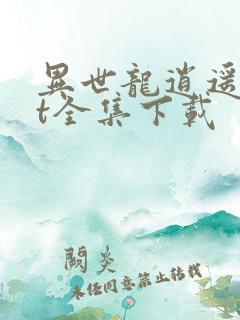 異世龍逍遥
t全集下載
闕炎
未经同意禁止转载